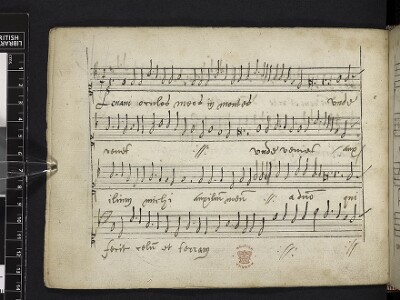 Levavi oculos meos in montes unde
veniet :// unde veniet aux
ilium michi auxilium meum :// a dno qui
fecit celum et terram :// ://